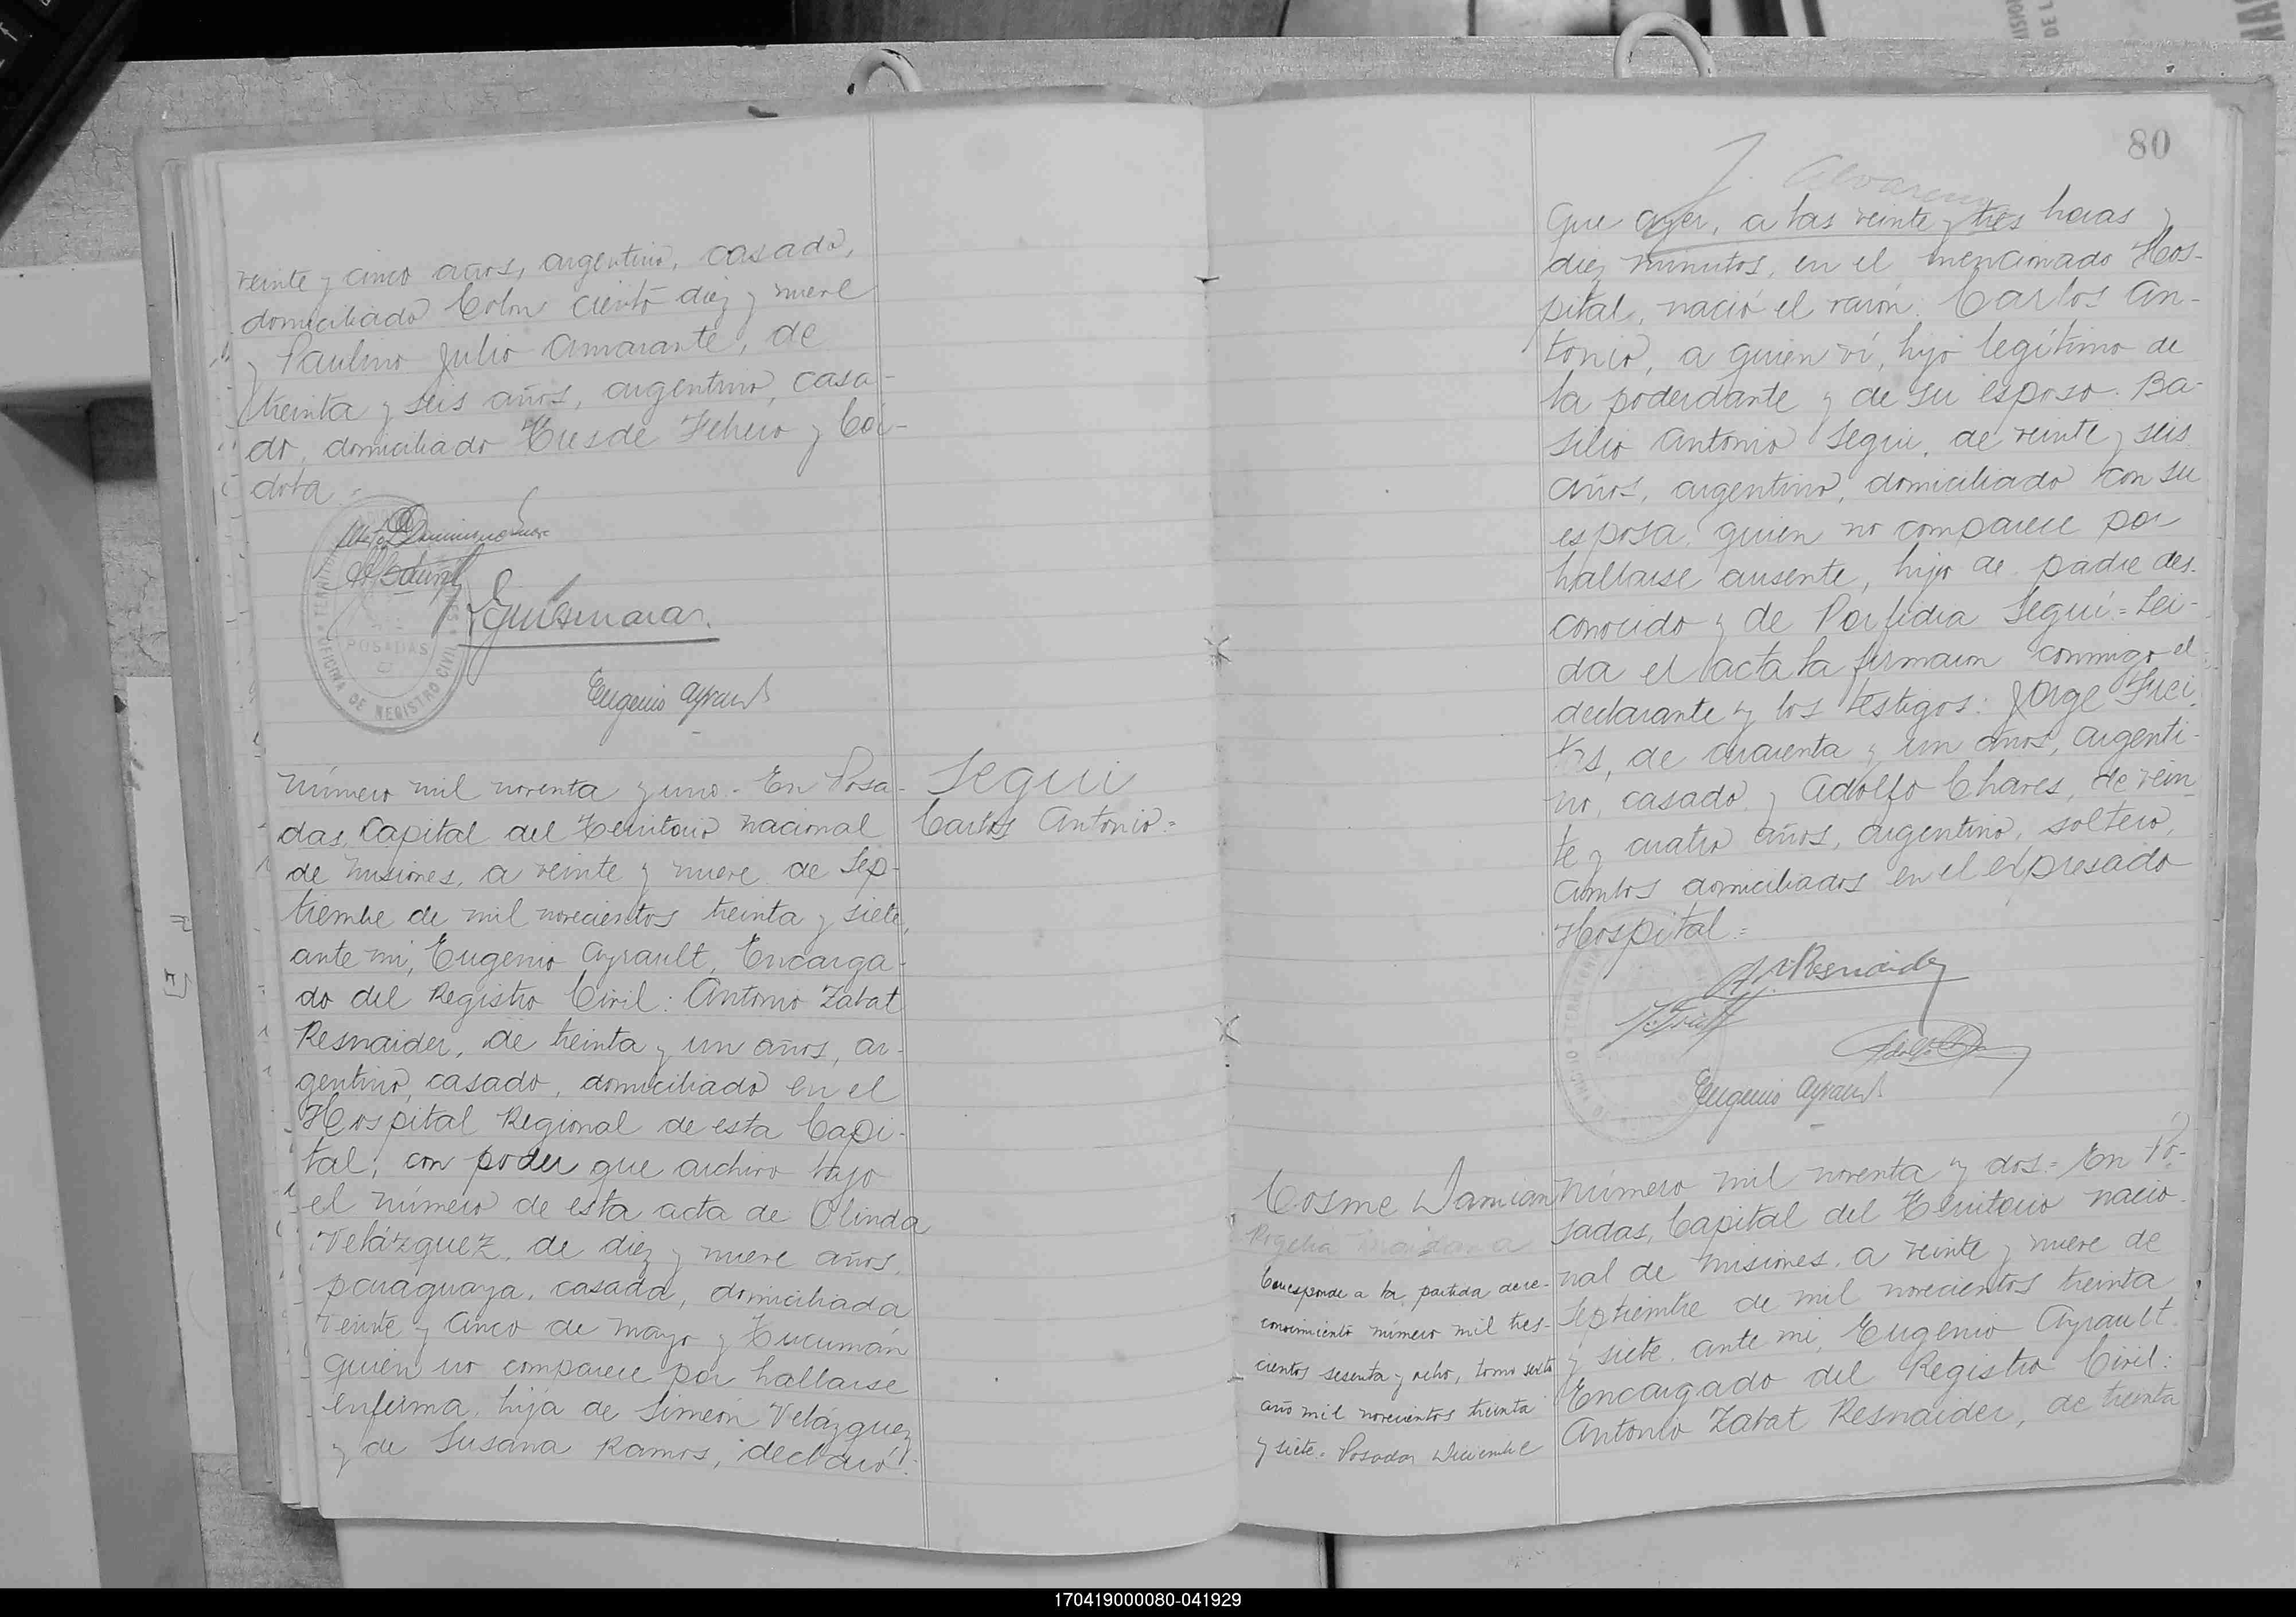 veinte y cinco años, argentino, casado,
domiciliado Colon ciento diez y nueve
y Paulino Julio Amarante, de
treinta y seis años, argentino, casa-
do, domiciliado Tres de Febrero y Cór-
doba.
OFICINA DE REGISTRO CIVIL
POSADAS
Eugenio Ayrault
Número mil noventa y uno. En Posa-
das, Capital del Territorio nacional
de Misiones, a veinte y nueve de Sep-
tiembre de mil novecientos treinta y siete,
ante mi, Eugenio Ayrault, Encarga-
do del Registro Civil: Antonio Zabat
Resnaider, de treinta y un años, ar-
gentino, casado, domiciliado en el
Hospital Regional de esta Capi-
tal, con poder que archivo bajo
el número de esta acta de Olinda
Velázquez, de diez y nueve años,
paraguaya, casada, domiciliada
Veinte y cinco de Mayo y Tucumán
quien no comparece por hallarse
enferma, hija de Simeón Velázquez
y de Susana Ramos, declaró:
Segui
Carlos Antonio=
80
J. Alvarenga
Que ayer, a las veinte y tres horas y
diez minutos, en el mencionado Hos-
pital, nació el varón: Carlos An-
tonio, a quien ví, hijo legítimo de
la poderdante y de su esposo: Ba-
silio Antonio Segui, de veinte y seis
años, argentino, domiciliado con su
esposa, quien no comparece por
hallarse ausente, hijo de padre des-
conocido y de Porfidia Seguí= Lei-
da el acta la firmaron conmigo el
declarante y los testigos: Jorge
de cuarenta y un años, argenti-
no, casado y Adolfo Chaves, de vein-
te y cuatro años, argentino, soltero,
ambos domiciliados en el expresado
Hospital=
A. Z. Resnaider
Eugenio Ayrault
Cosme Damian
Rogelia Maidana
Corresponde a la partida de re-
conocimiento número mil tres-
cientos sesenta y ocho, tomo sexto
año mil novecientos treinta
y siete= Posadas Diciembre
Número mil noventa y dos= En Po-
sadas, Capital del Territorio nacio-
nal de Misiones, a veinte y nueve de
Septiembre de mil novecientos treinta
y siete, ante mi, Eugenio Ayrault,
Encargado del Registro Civil:
Antonio Zabat Resnaider, de treinta
170419000080-041929